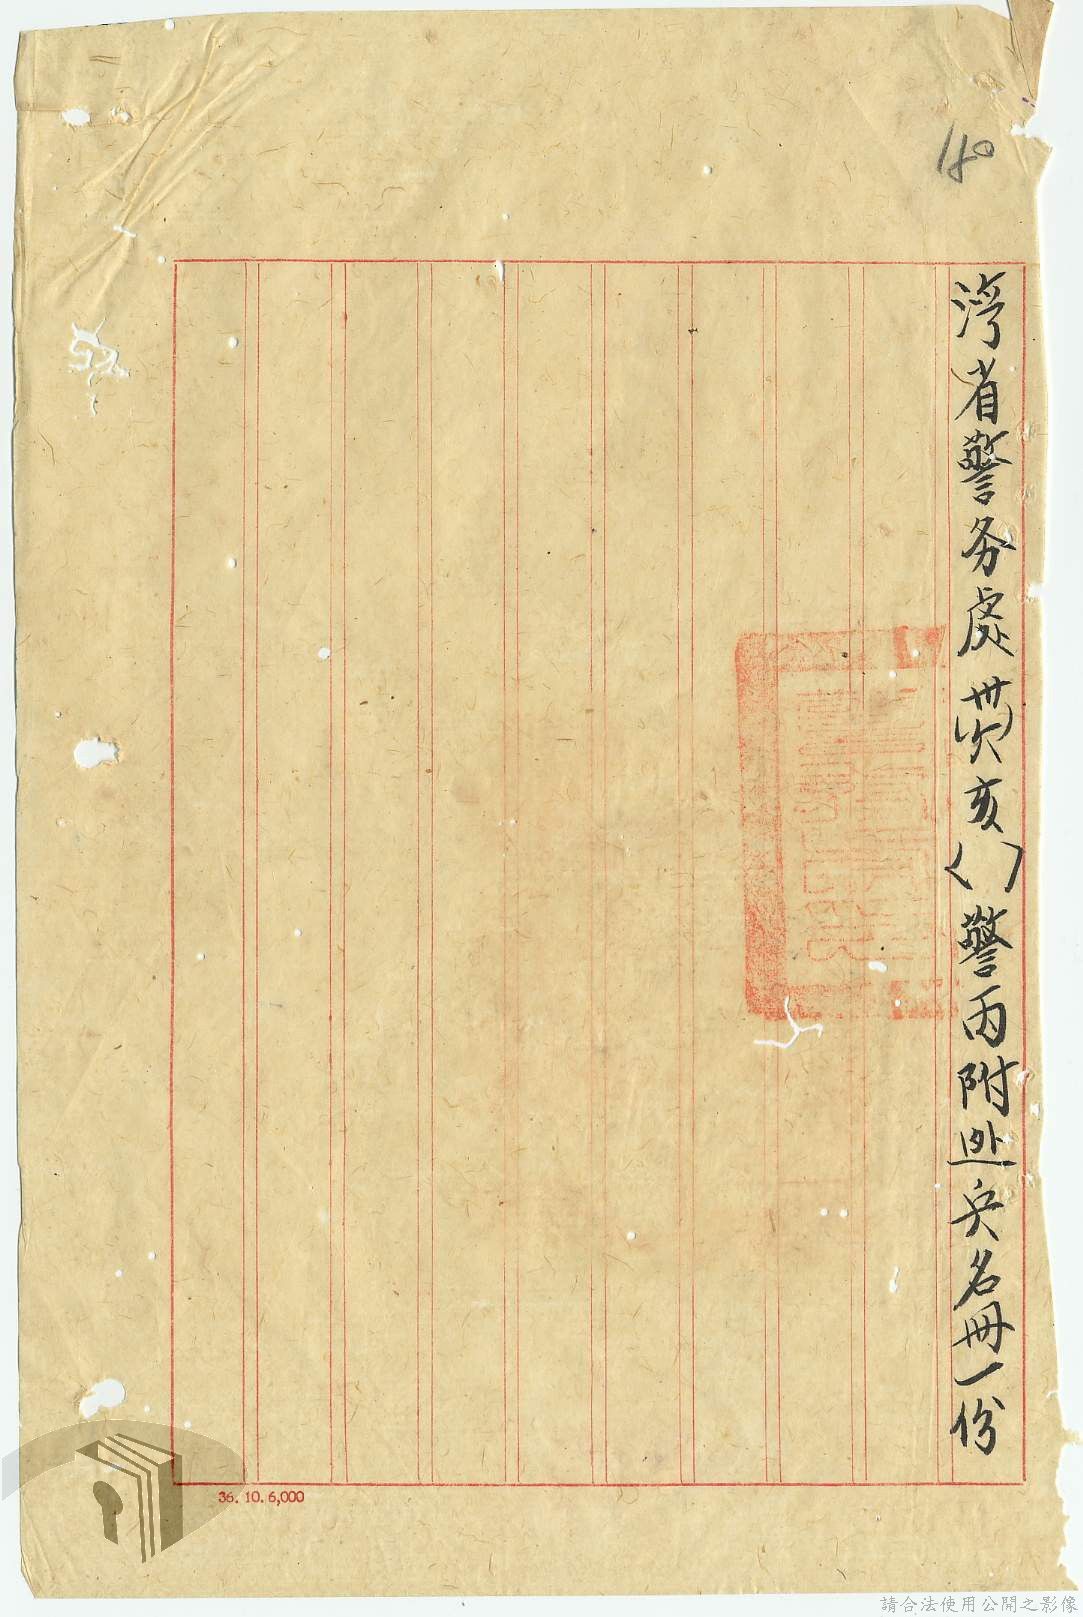 180
湾省警务處(卅六)亥( )警丙附逃兵名冊一份
36. 10. 6,000
請合法使用公開之影像